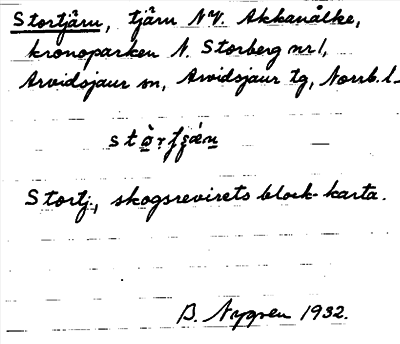 Stortjärn, tjärn NV. Akkanålke,
kronoparken N. Storberg nr 1,
Arvidsjaur sn, Arvidsjaur tg, Norrb. l.
Stortj., skogsrevirets block-karta.
B. Nygren 1932.